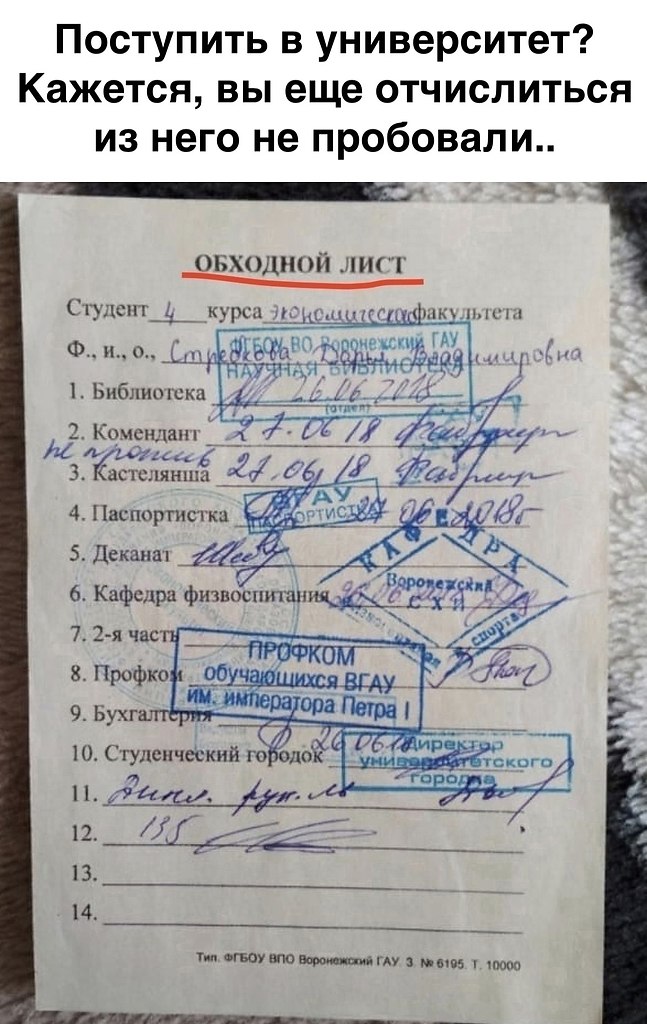 Поступить в университет?
Кажется, вы еще отчислиться
из него не пробовали..
ОБХОДНОЙ ЛИСТ
Студент 4 курса экономическ факультета
Ф., и., о., Стрекова Дарья Владимировна
ФГБОУ ВО Воронежский ГАУ
НАУЧНАЯ БИБЛИОТЕКА
1. Библиотека 26.06.2018
(отдел)
2. Комендант 27.06 18
не против
3. Кастелянша 27.06 18
ВГАУ
4. Паспортистка 27 06 2018г
ПАСПОРТИСТКА
5. Деканат
КАФЕДРА
6. Кафедра физвоспитания
Воронежский
СХИ
спорта
7. 2-я часть
ПРОФКОМ
8. Профком
обучающихся ВГАУ
им. императора Петра I
9. Бухгалтерия
10. Студенческий городок 26 06 18
Директор
университетского
городка
11. Дипл. рук.
12. 135
13.
14.
Тип. ФГБОУ ВПО Воронежский ГАУ З. № 6195. Т. 10000